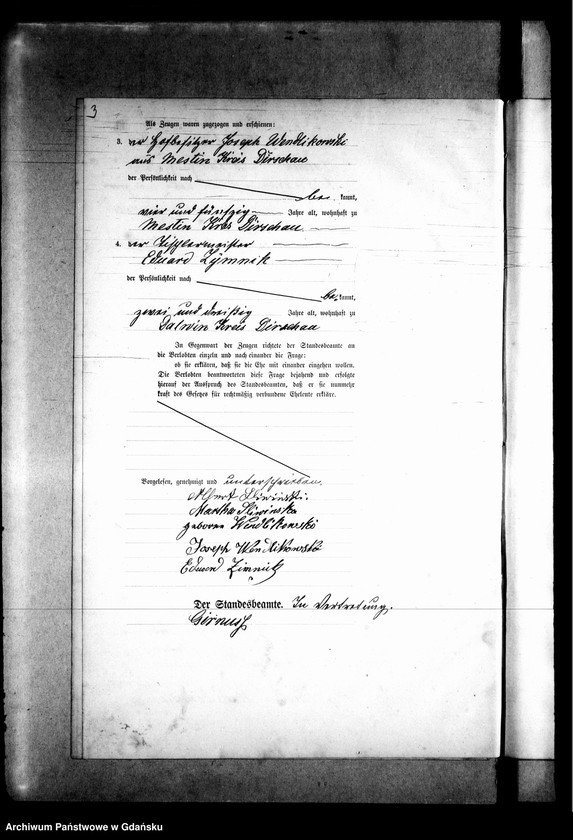 3
Als Zeugen waren zugezogen und erschienen:
3. der Hofbesitzer Joseph Wendlikowski
aus Mestin Kreis Dirschau
der Persönlichkeit nach
be kannt,
vier und fünfzig Jahre alt, wohnhaft zu
Mestin Kreis Dirschau
4. der Tischlermeister
Eduard Zymnik
der Persönlichkeit nach
be kannt,
zwei und dreißig Jahre alt, wohnhaft zu
Dalwin Kreis Dirschau
In Gegenwart der Zeugen richtete der Standesbeamte an
die Verlobten einzeln und nach einander die Frage:
ob sie erklären, daß sie die Ehe mit einander eingehen wollen.
Die Verlobten beantworteten diese Frage bejahend und erfolgte
hierauf der Ausspruch des Standesbeamten, daß er sie nunmehr
kraft des Gesetzes für rechtmäßig verbundene Eheleute erkläre.
Vorgelesen, genehmigt und unterschrieben.
Albert Sliwinski.
Martha Sliwinska
geborene Wendlikowski
Joseph Wendlikowski
Eduard Zimnik
Der Standesbeamte. In Vertretung.
Archiwum Państwowe w Gdańsku